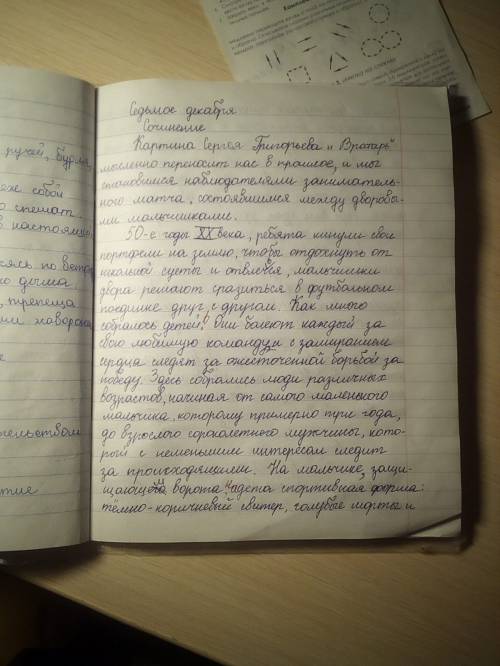 Седьмое декабря
Сочинение
Картина Сергея Григорьева „Вратарь"
мысленно переносит нас в прошлое, и мы
становимся наблюдателями заниматель-
ного матча, состоявшимся между дворовы-
ми мальчиками.
50-е годы XX века, ребята кинули свои
портфели на землю, чтобы отдохнуть от
школьной суеты и отвлечся, мальчишки
двора решают сразиться в футбольном
поединке друг с другом. Как много
собралось детей! Они болеют каждый за
свою любимую команду и с замиранием
сердца следят за ожесточенной борьбой за
победу. Здесь собрались люди различных
возрастов, начиная от самого маленького
мальчика, которому примерно три года,
до взрослого сорокалетнего мужчины, кото-
рый с неменьшим интересом следит
за происходящим. На мальчике, защи-
щающем ворота надета спортивная форма:
тёмно-коричневый свитер, голубые шорты и
ручей, бурля,
собой
спешат.
настоящ
по
дыма
трепеща
жаворон
тельством
тие